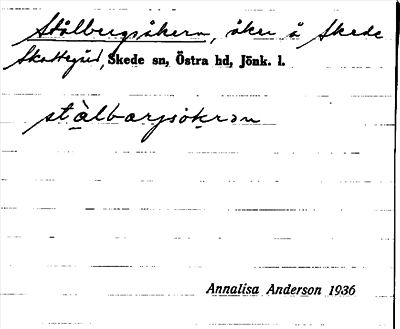 Stålbergsåkern, åker å Skede
Skattegård, Skede sn, Östra hd, Jönk. l.
stàlbarjsåkrən
Annalisa Anderson 1936